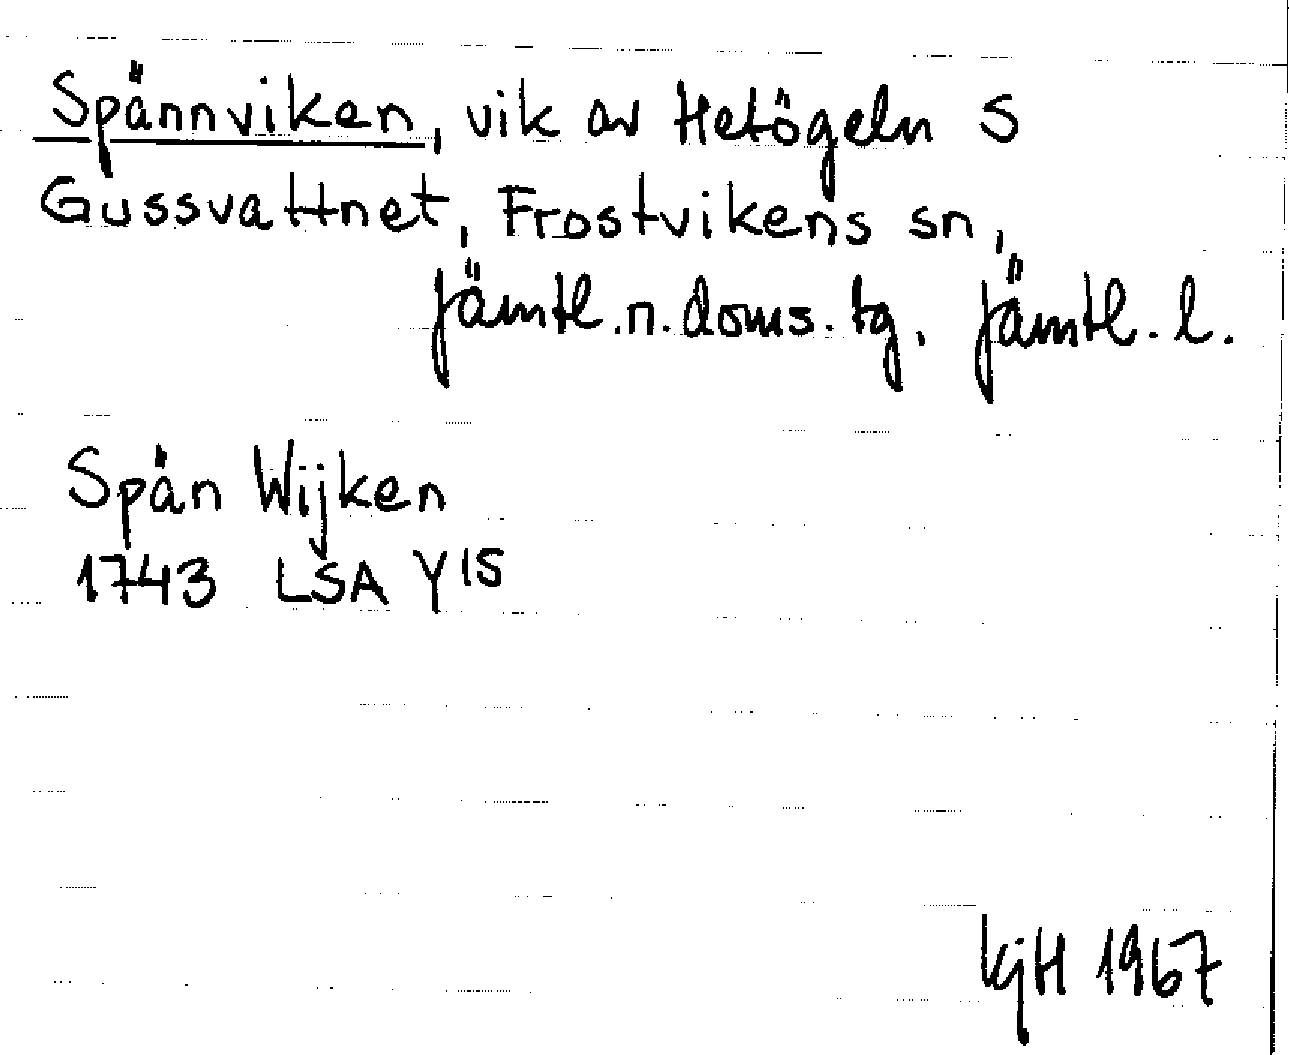 Spännviken, vik av Hetögeln S
Gussvattnet, Frostvikens sn,
Jämtl. n. doms. tg. Jämtl. l.
Spän Wijken
1743 LSA Y15
KjH 1967